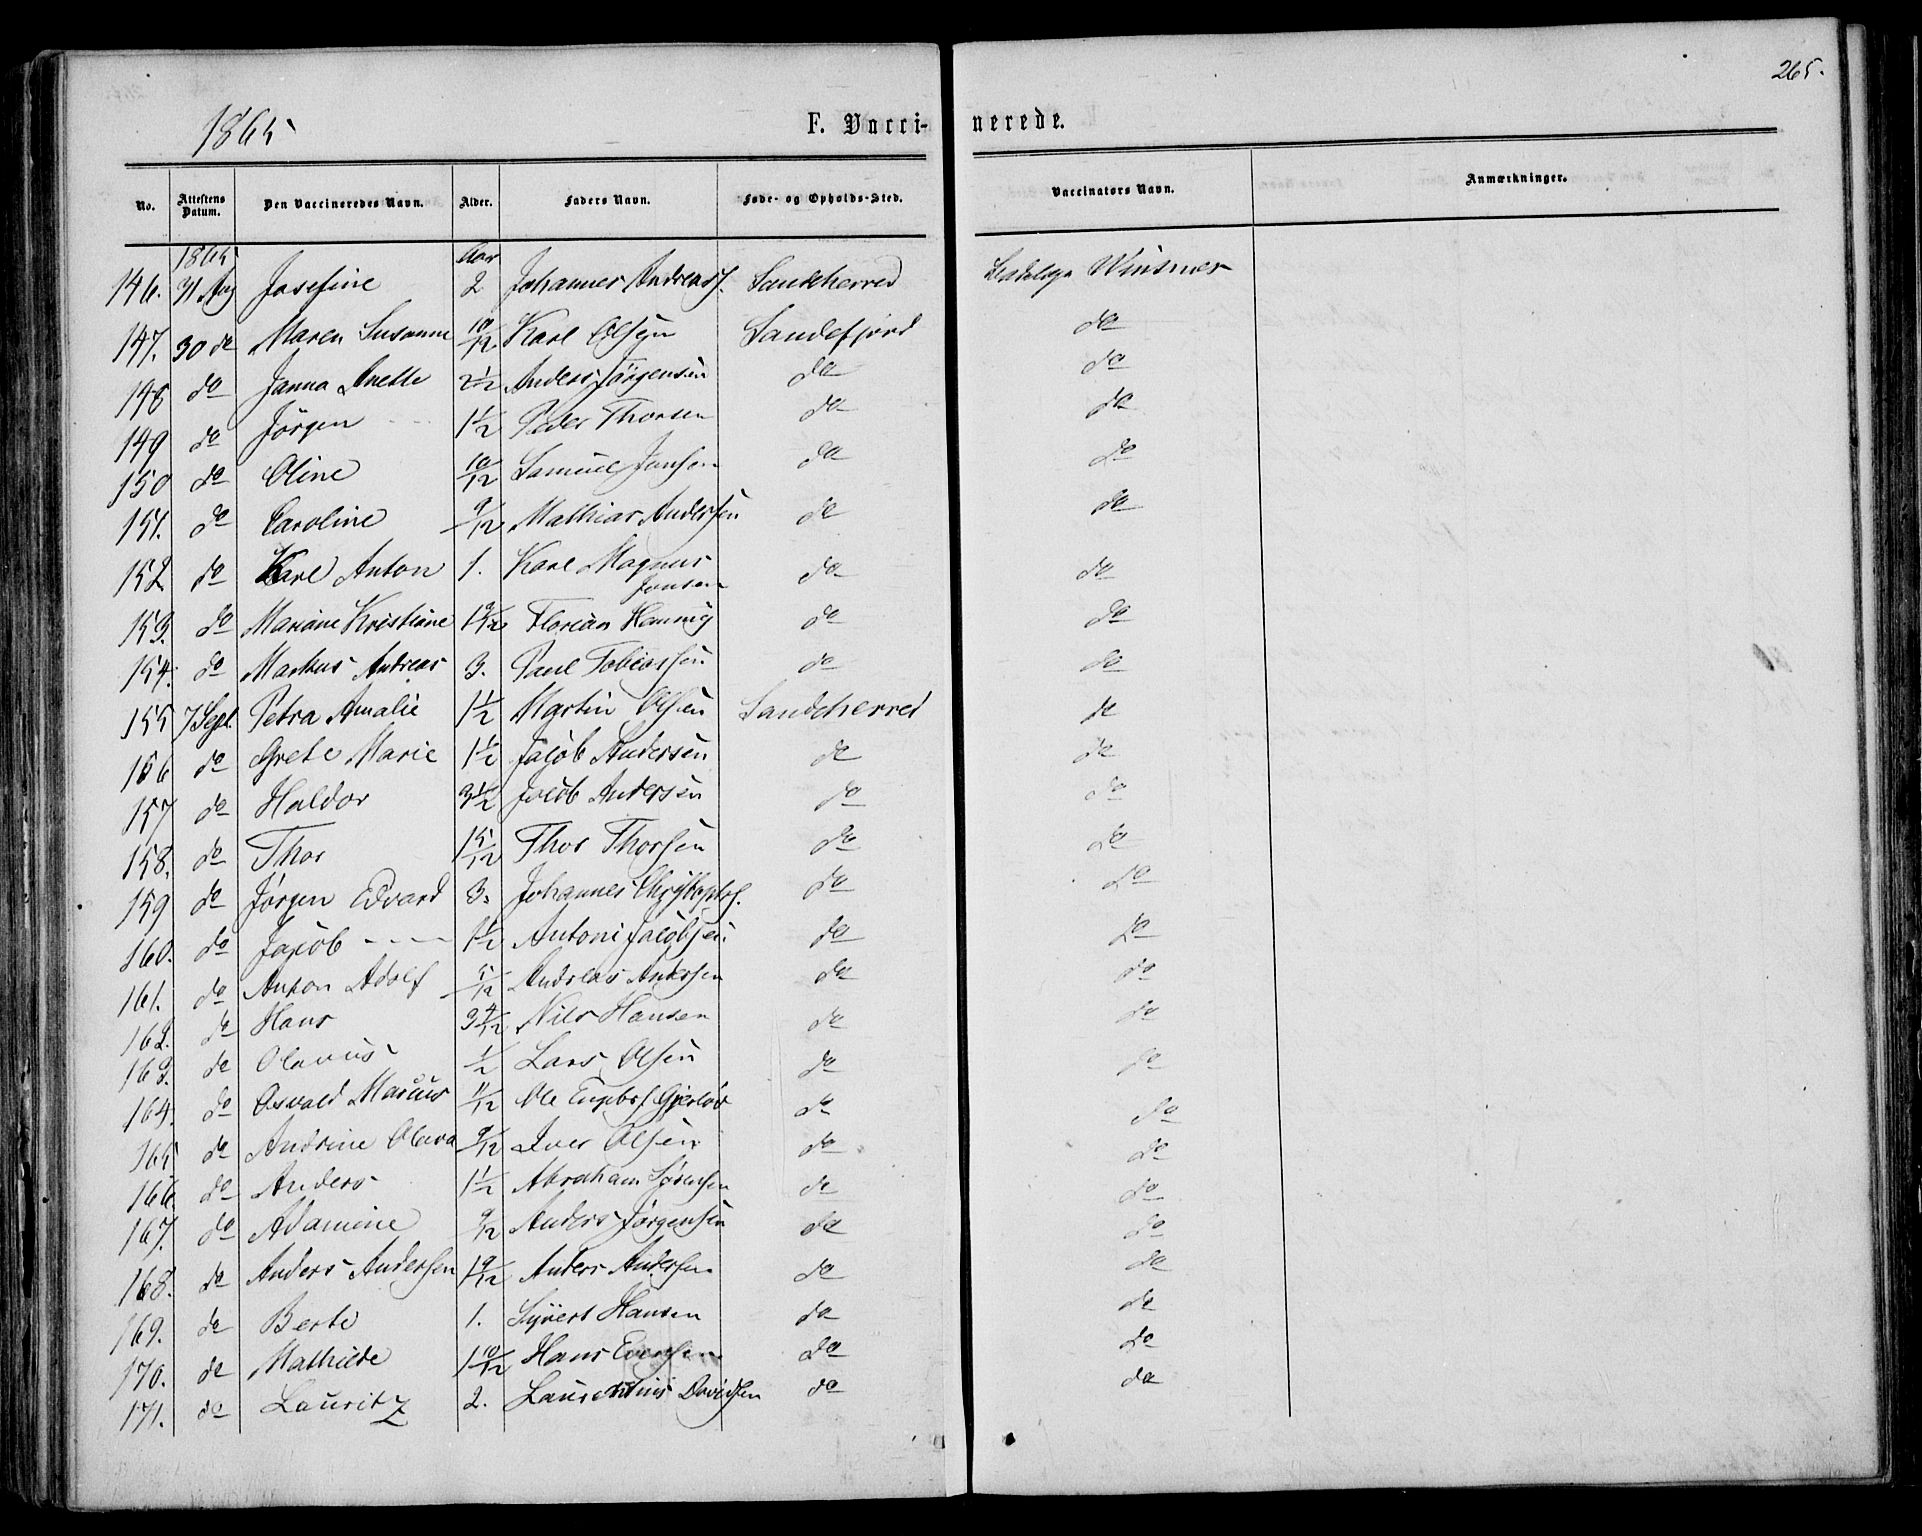 265.
1865
F. Vacci- nerede.
No. Attestens Datum. Den Vaccineredes Navn. Alder. Faders Navn. Føde- og Opholds-Sted. Vaccinators Navn. Anmærkninger.
1865 Aar
146. 31 Aug Josefine 2 Johannes Andreasf. Sandeherred Winsnes
147. 30 do Maren Susanne 10/12 Karl Olsen Sandefjord do
148 do Janna Anette 2 1/2 Anders Jörgensen do do
149 do Jörgen 1 1/2 Peder Thorsen do do
150 do Oline 10/12 Samuel Jansen do do
151. do Caroline 9/12 Mathias Andersen do do
152 do Karl Anton 1. Karl Magnus Jonsen do do
153. do Mariane Kristiane 1 9/12 Florian do do
154. do Markus Andreas 3. Paul Tobiassen do do
155 7 Sept. Petra Amalie 1 1/2 Martin Olsen Sandeherred do
156 do Grete Marie 1 1/2 Jacob Andersen do do
157 do Haldor 3 1/2 Jacob Andersen do do
158. do Thor 15/12 Thor Thorsen do do
159 do Jørgen Edvard 3. Johannes do do
160. do Jacob 1 1/2 Antoni Jacobsen do do
161. do Anton Adolf 5/12 Andreas Andersen do do
162. do Hans 3 4/12 Nils Hansen do do
163. do Olavus 1/2 Lars Olsen do do
164. do Osvald Marcus 11/12 Ole Gjerløv do do
165 do Andrine Olava 9/12 Iver Olsen do do
166. do Anders 1 1/2 Abraham Sørensen do do
167. do Adamine 9/12 Anders Jørgensen do do
168. do Anders Andersen 1 9/12 Anders Andersen do do
169. do Berte 1. Syvert Hansen do do
170. do Mathilde 1 10/12 Hans Evensen do do
171. do Lauritz 2. Laurentius Davidsen do do